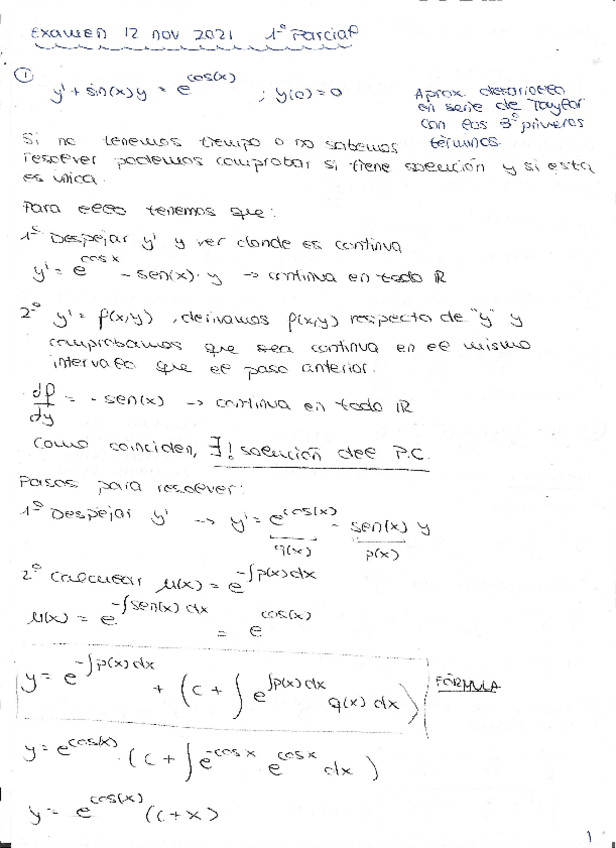 Examen 12 nov 2021 1º Parcial
① y' + sin(x) y = e^cos(x) ; y(0) = 0
Aprox. desarrollo
en serie de Taylor
con los 3 primeros
términos.
Si no tenemos tiempo o no sabemos
resolver podemos comprobar si tiene solución y si esta
es única.
Para ello tenemos que:
1º Despejar y' y ver donde es continua
y' = e^cos x - sen(x) · y → continua en todo ℝ
2º y' = f(x,y), derivamos f(x,y) respecto de "y" y
comprobamos que sea continua en el mismo
intervalo que el paso anterior.
df/dy = - sen(x) → continua en todo ℝ
Como coinciden, ∃! solución del P.C.
Pasos para resolver:
1º Despejar y' → y' = e^cos(x) - sen(x) y
q(x) p(x)
2º Calcular μ(x) = e^-∫p(x)dx
μ(x) = e^-∫sen(x) dx = e^cos(x)
y = e^-∫p(x)dx + (c + ∫ e^∫p(x)dx q(x) dx)
FÓRMULA
y = e^cos(x) · (c + ∫ e^-cos x e^cos x dx)
y = e^cos(x) (c + x)
1